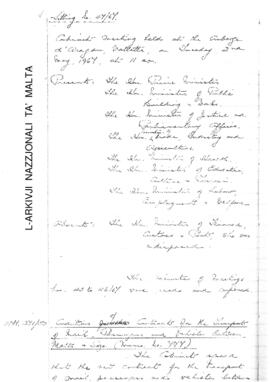 Sitting No. 47/67.
Cabinet meeting held at the Auberge
d'Aragon, Valletta, on Tuesday 2nd
May, 1967, at 11 am.
Present: The Hon. Prime Minister
The Hon. Minister of Public
Building & Works.
The Hon. Minister of Justice and
Parliamentary Affairs.
The Hon. Minister Trade, Industry and
Agriculture
The Hon. Minister of Health.
The Hon. Minister of Education,
Culture & Tourism
The Hon. Minister of Labour,
Employment & Welfare
Absent: The Hon. Minister of Finance,
Customs & Port, who was
indisposed.
The minutes of meetings
No. 45 to 46/67 were read and approved
of
Conditions Contracts for the Transport
of Mail, Passengers and Vehicles between
Malta & Gozo. (Memo. No.
The Cabinet agreed
that the new contract for the transport
of mail, passengers and vehicles between
L-ARKIVJI NAZZJONALI TA' MALTA